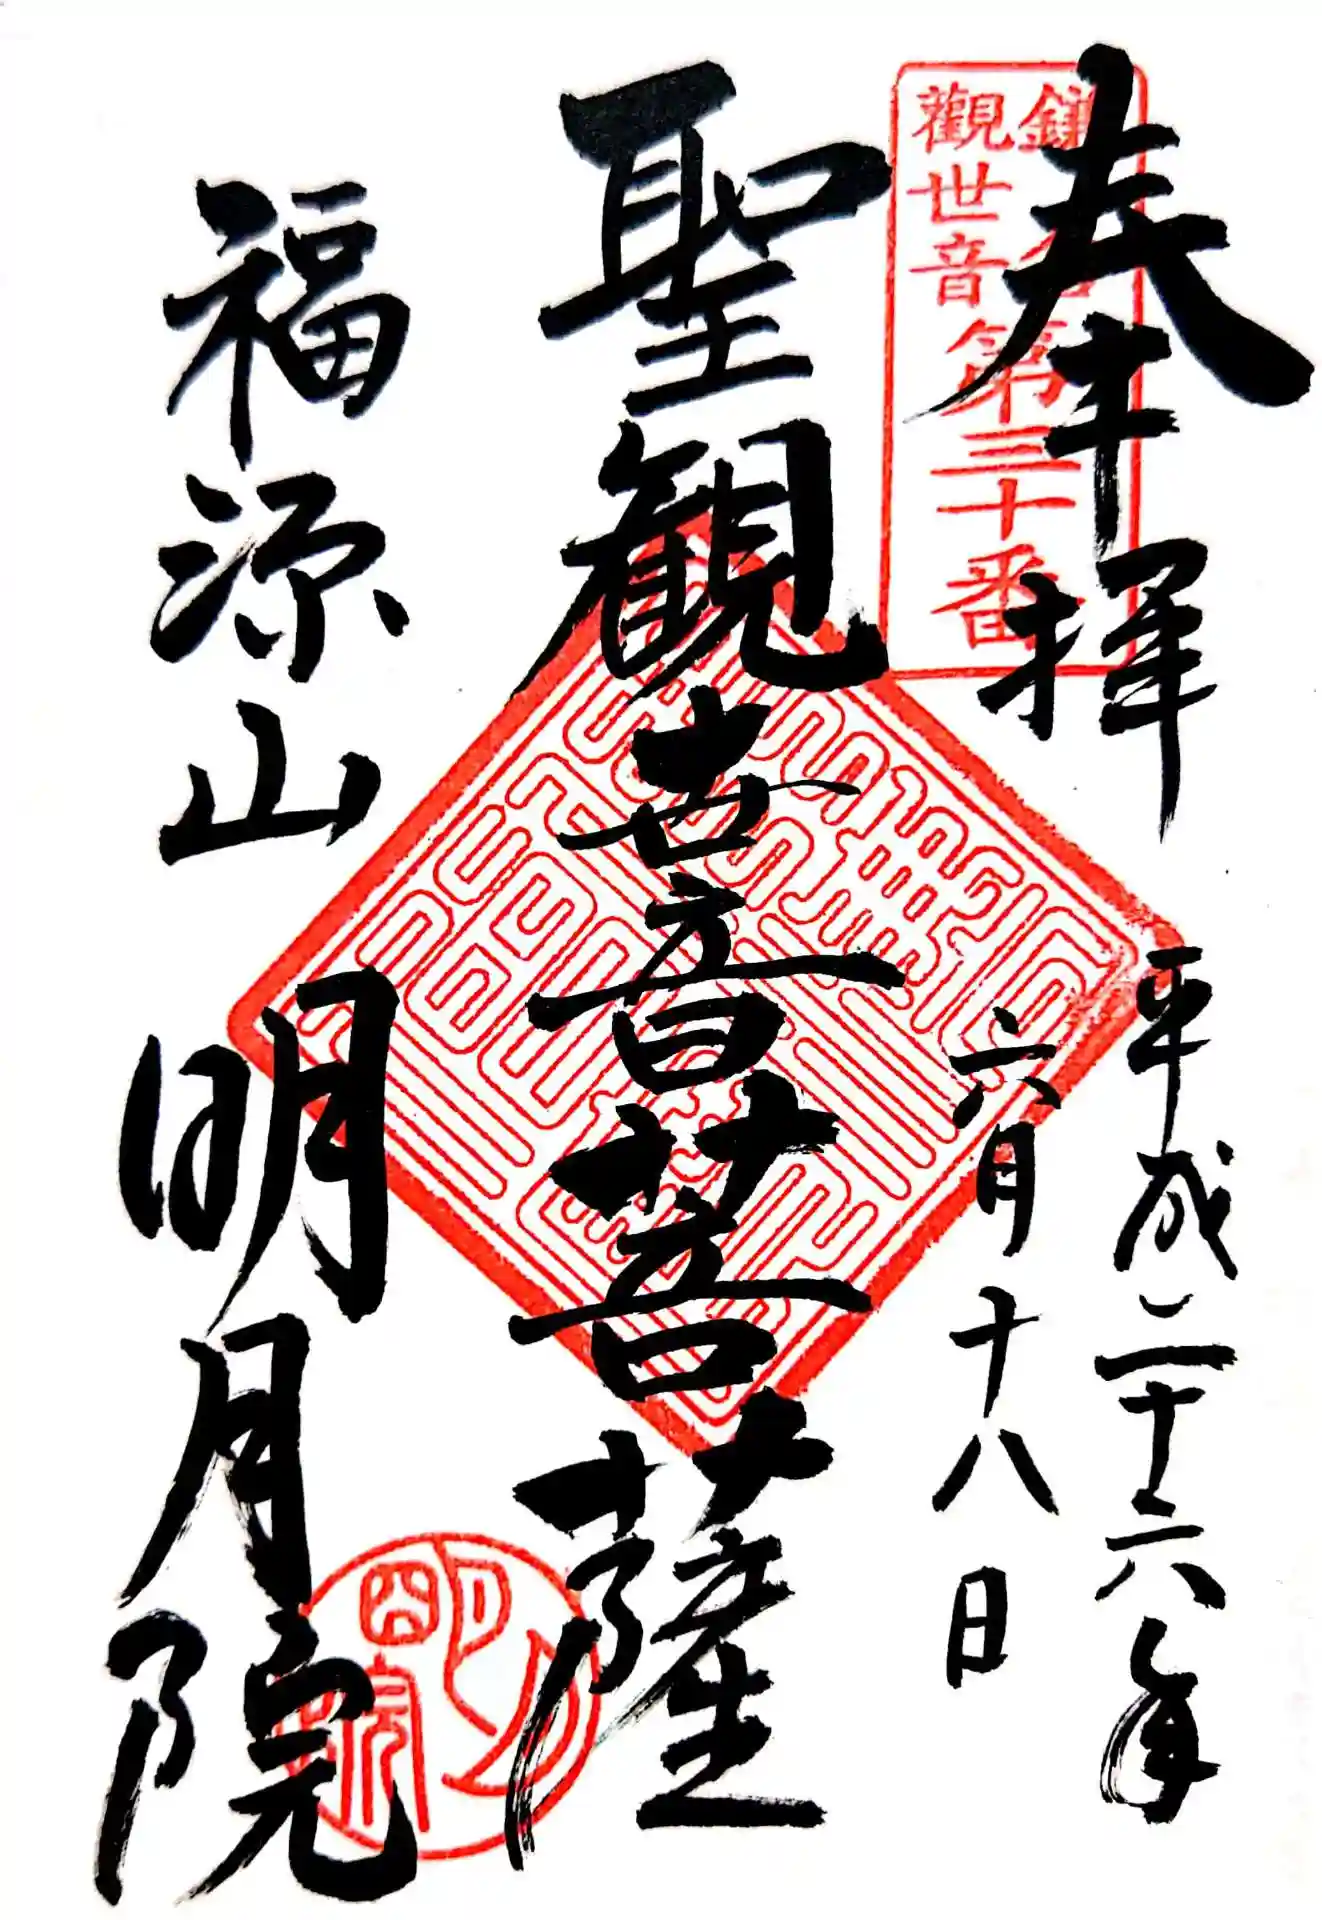 奉拝
鎌倉
観世音第三十番
平成二十六年
六月十八日
聖観世音菩薩
福源山
明月院